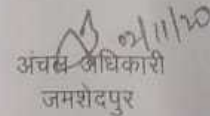 02/11/20
अंचल अधिकारी
जमशेदपुर